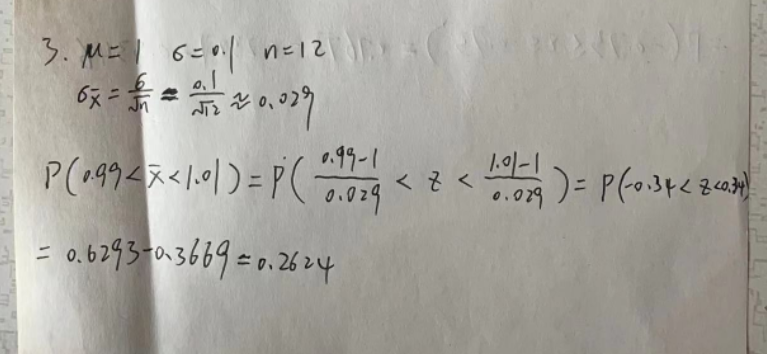 3. μ=1 σ=0.1 n=12
σx̄ = σ/√n = 0.1/√12 ≈ 0.029
P(0.99<x̄<1.01) = P((0.99-1)/0.029 < z < (1.01-1)/0.029) = P(-0.34<z<0.34)
= 0.6293-0.3669=0.2624